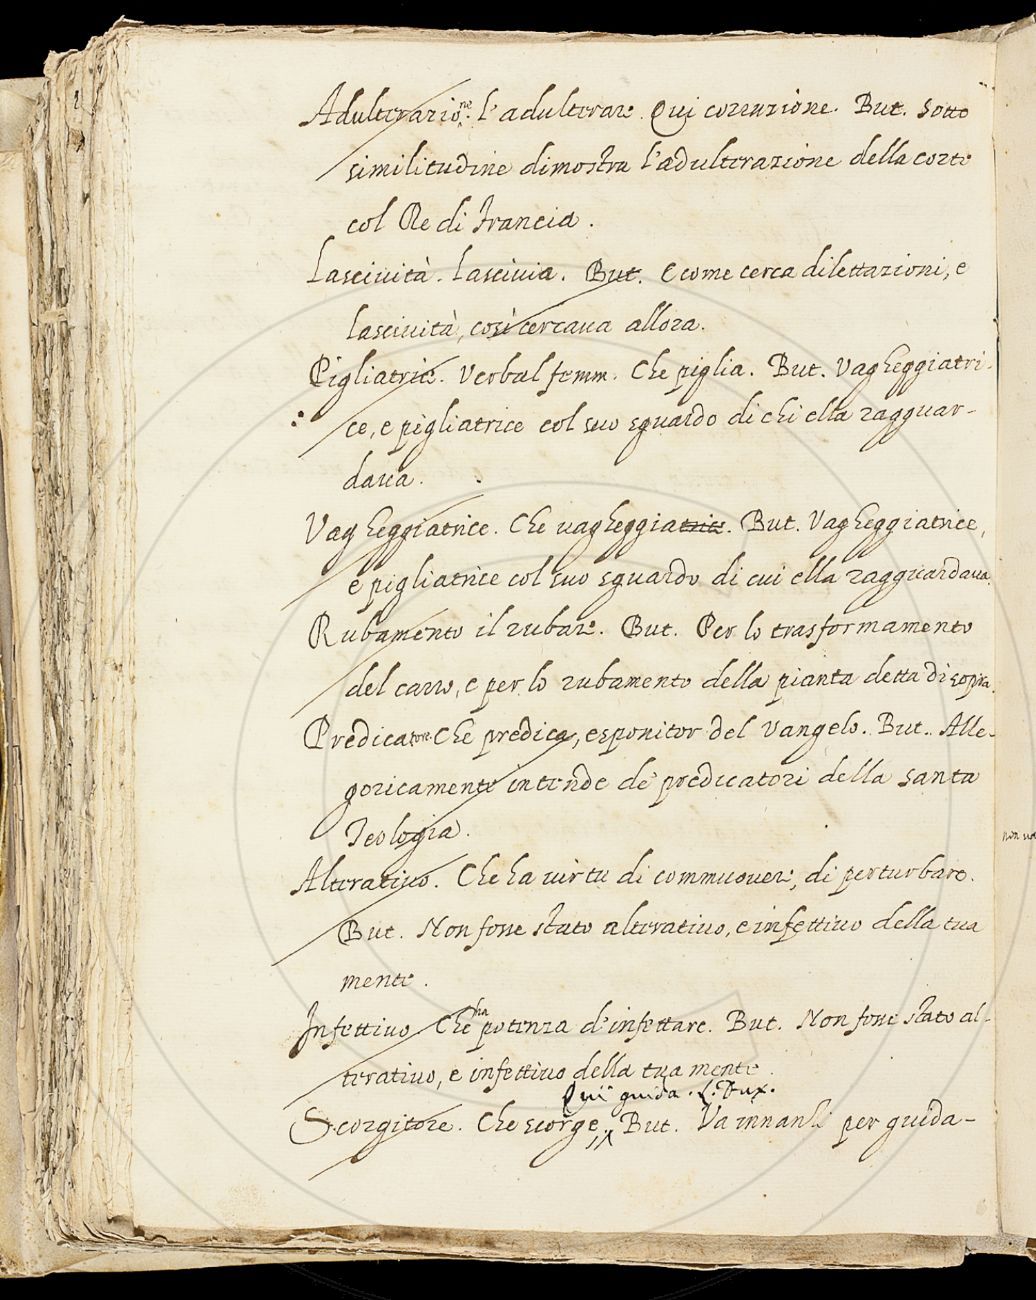 Adulterazio.ne l'adulterare. Qui corruzione. But. Sotto
similitudine dimostra l'adulterazione della corte
col Re di Francia.
Lascività. Lascivia. But. E come cerca dilettazioni, e
lascività, così cercava allora.
Pigliatrice. Verbal femm. Che piglia. But. Vagheggiatri-
ce, e pigliatrice col suo sguardo di chi ella ragguar-
dava.
Vagheggiatrice. Che vagheggiatrice. But. Vagheggiatrice,
e pigliatrice col suo sguardo di cui ella ragguardava
Rubamento il rubare. But. Per lo trasformamento
del carro, e per lo rubamento della pianta detta di sopra.
Predicatore. Che predica, espositor del Vangelo. But. Alle-
goricamente intende de' predicatori della santa
Teologia.
Alterativo. Che ha virtù di commuovere, di perturbare.
But. Non fosse stato alterativo, e infettivo della tua
mente.
Infettivo. Che ha potenza d'infettare. But. Non fosse stato al-
terativo, e infettivo della tua mente.
Qui guida. L. Dux.
Scorgitore. Che scorge. But. Va innanzi per guida-
non